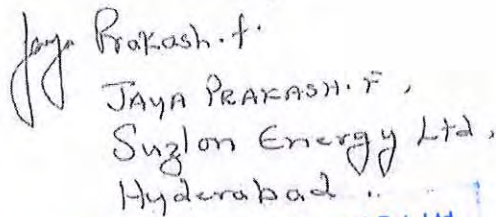 Jaya Prakash.f.
JAYA PRAKASH.F,
Suzlon Energy Ltd,
Hyderabad ..